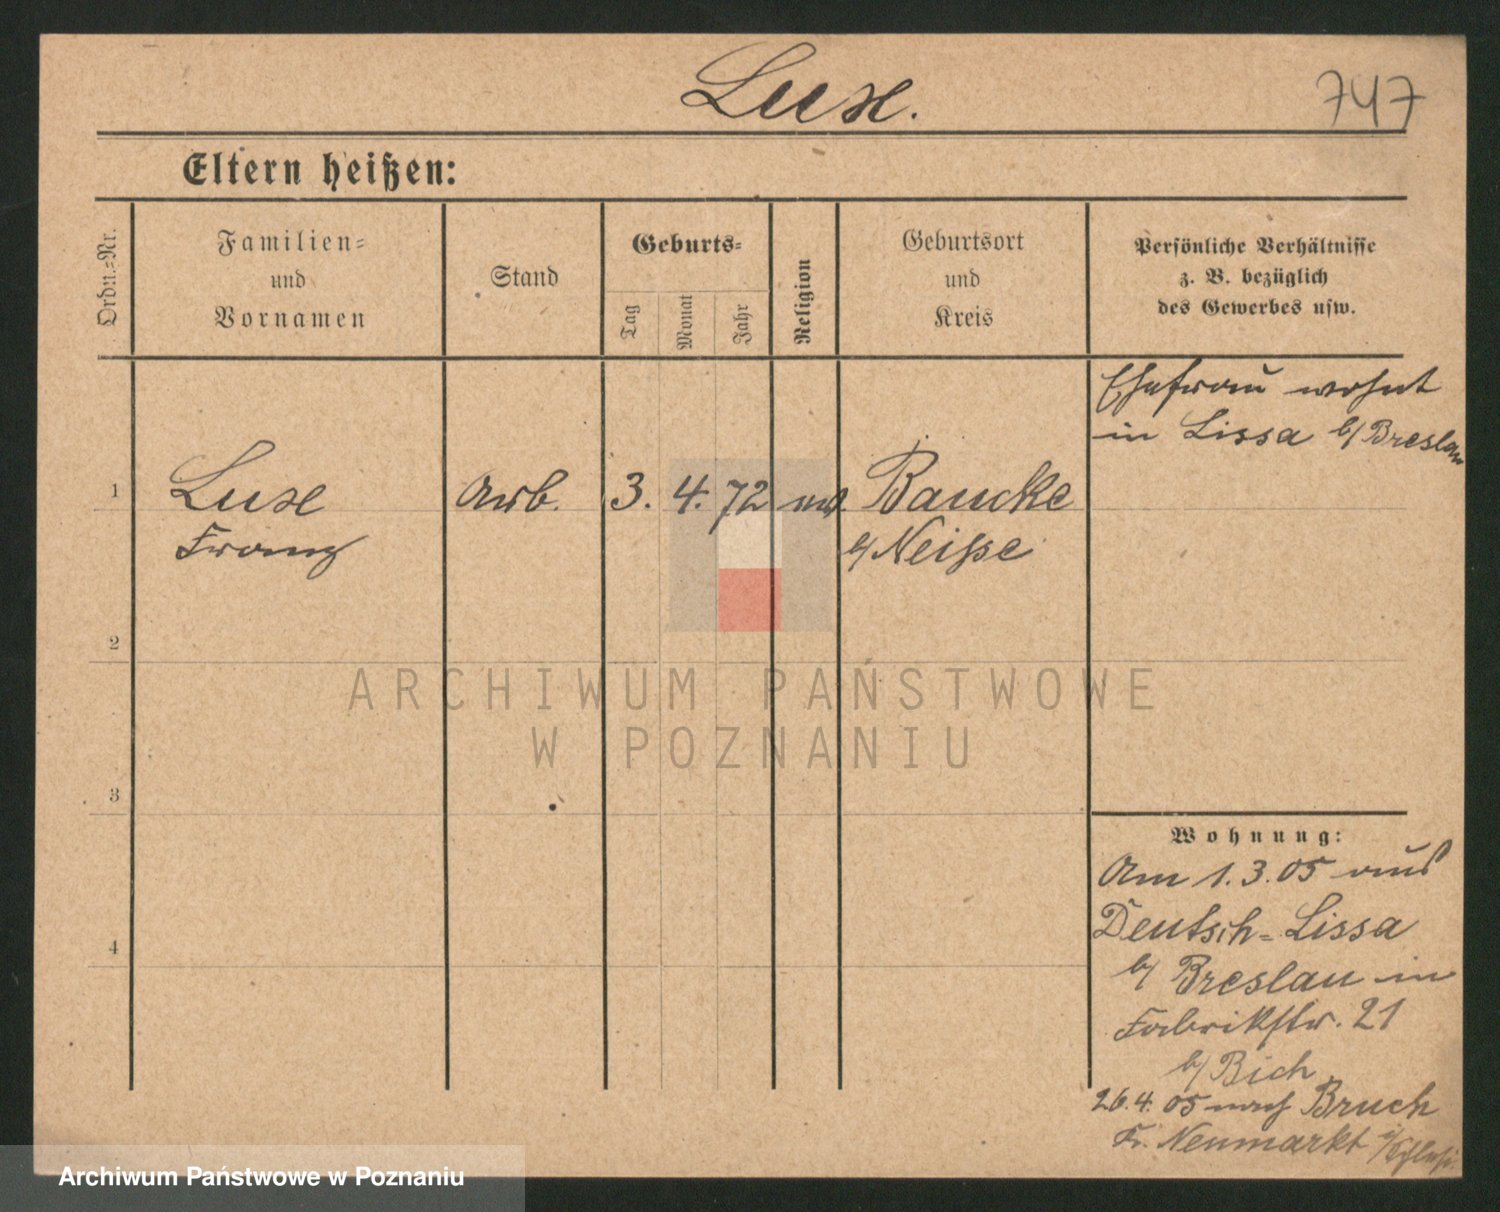 Luxe.
747
Eltern heißen:
Ordn.=Nr.
Familien=
und
Vornamen
Stand
Geburts=
Tag
Monat
Jahr
Religion
Geburtsort
und
Kreis
Persönliche Verhältnisse
z. B. bezüglich
des Gewerbes usw.
Ehefrau wohnt
in Lissa b/Breslau
1
Luxe
Arb.
3.
4.
72
Baucke
Franz
b/Neisse
2
ARCHIWUM PAŃSTWOWE
W POZNANIU
3
Wohnung:
Am 1.3.05 aus
Deutsch=Lissa
b/ Breslau in
Fabrikstr. 21
b/ Bich
4
26.4.05 nach Bruch
Kr. Neumarkt
Archiwum Państwowe w Poznaniu